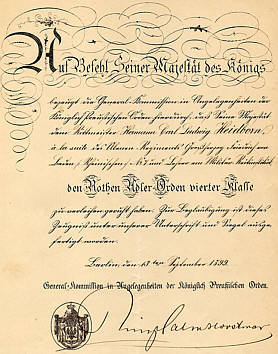 Auf Befehl Seiner Majestät des Königs
bezeugt die General-Kommission in Angelegenheiten der
Königlich Preußischen Orden hierdurch, daß Seine Majestät
dem Rittmeister Hermann Carl Ludwig Heidborn,
à la suite des Ulanen-Regiments Großherzog Friedrich von
Baden (Rheinisches) № 7 und Lehrer am Militär-Reitinstitut
den Rothen Adler-Orden vierter Klasse
zu verleihen geruht haben. Zur Beglaubigung ist dieses
Zeugniß unter unserer Unterschrift und Siegel ausge-
fertigt worden.
Berlin, den 13ten September 1899.
General-Kommission in Angelegenheiten der Königlich Preußischen Orden.